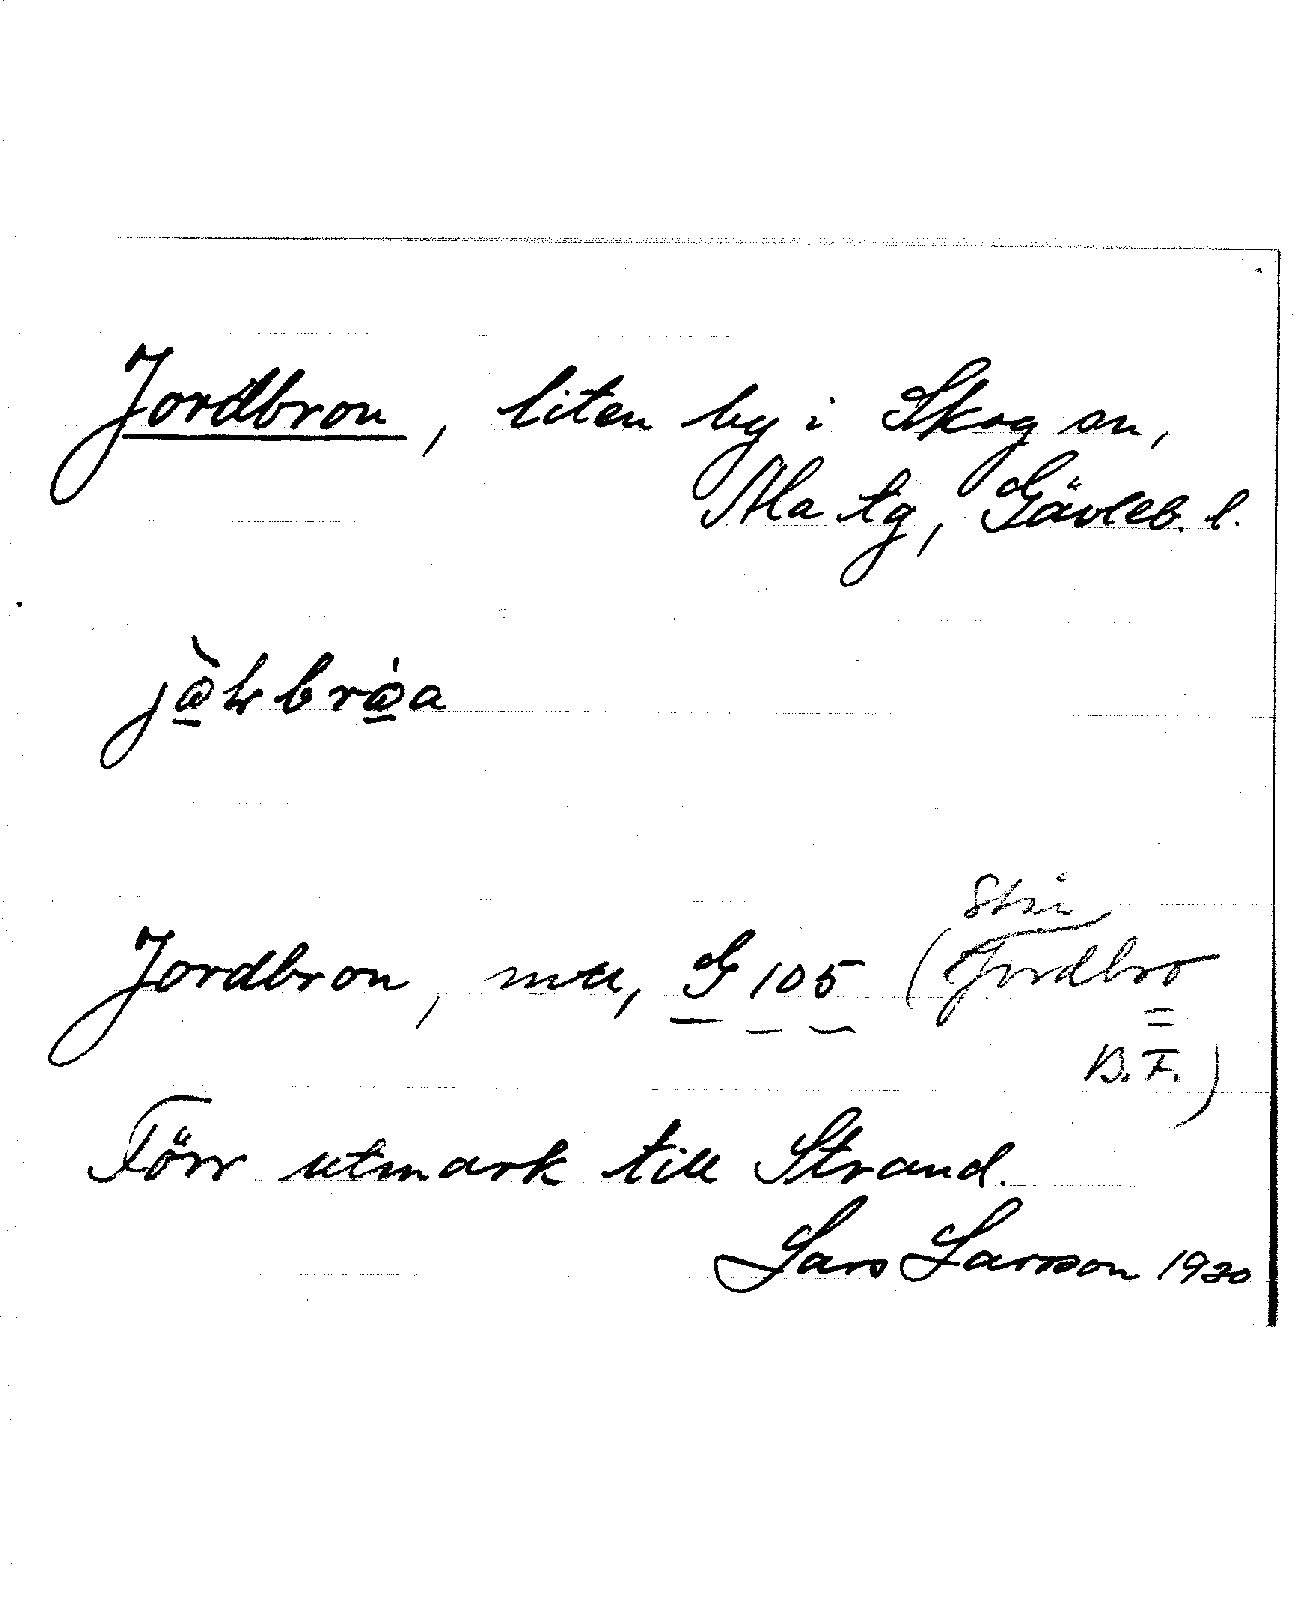 Jordbron, liten by i Skog sn,
Ala tg, Gävleb. l.
Jordbron, mtl, G 105 (Jordbro
B.F.)
Förr utmark till Strand.
Lars Larsson 1930